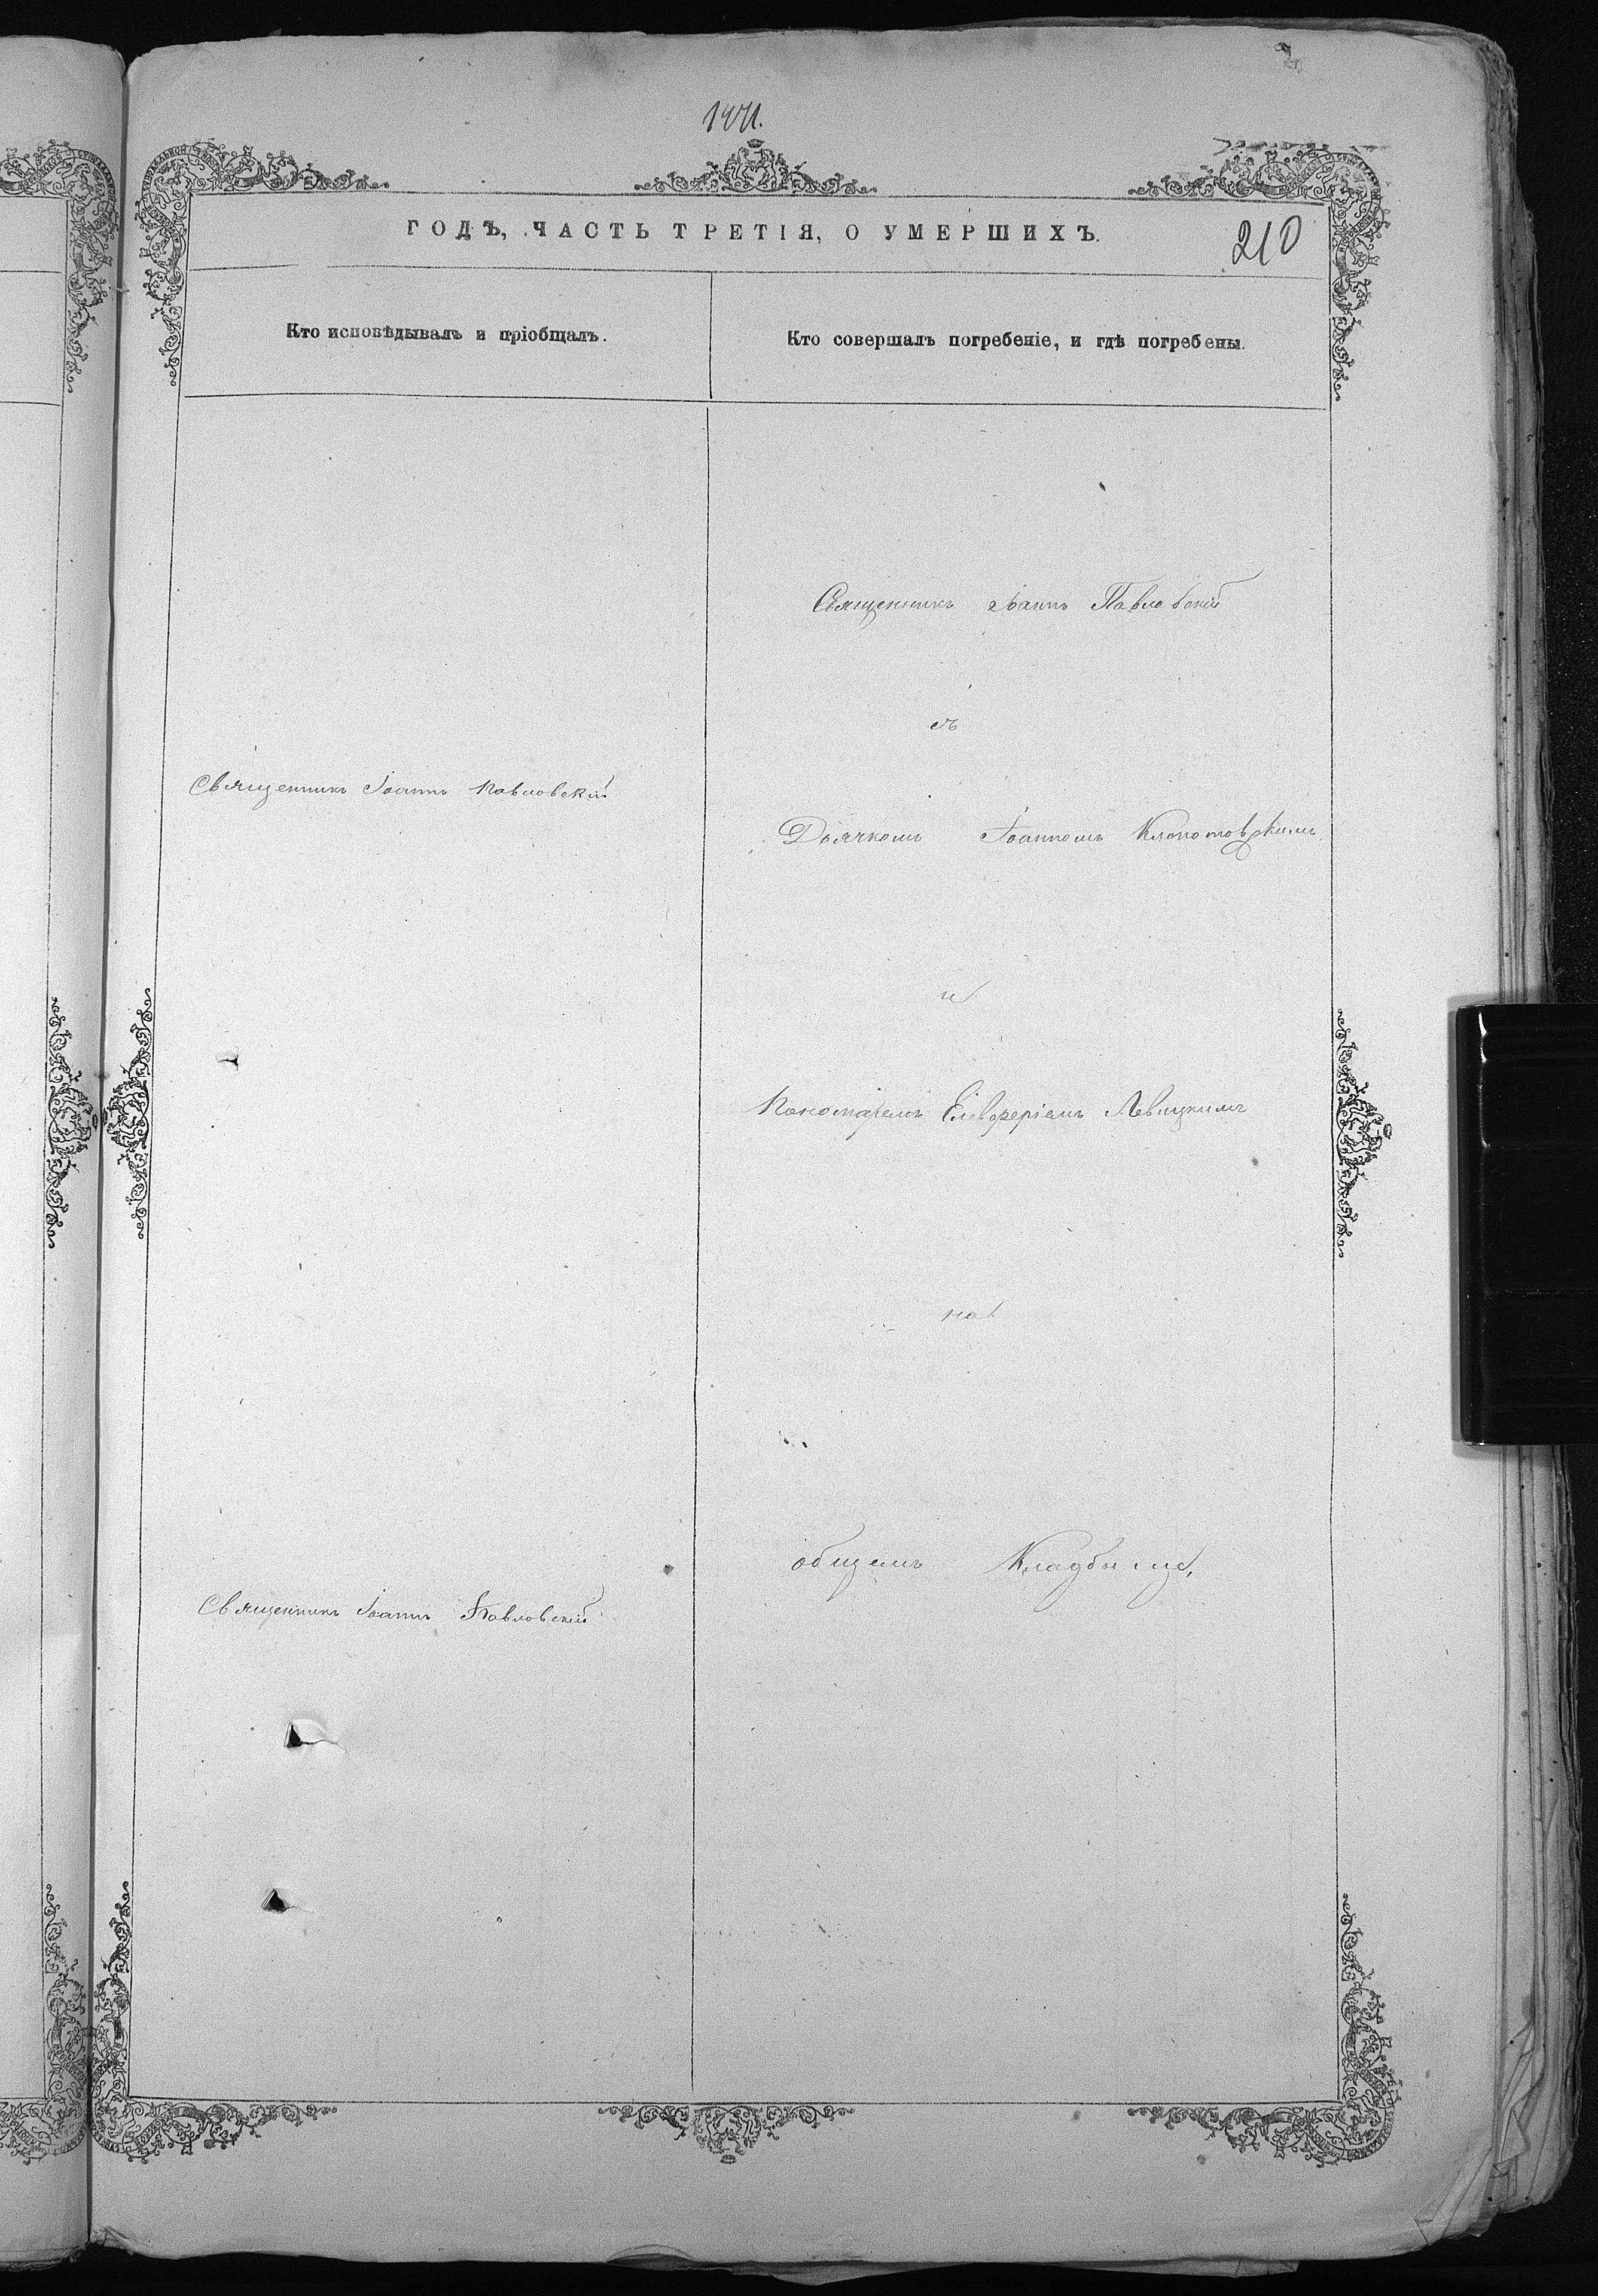 ГОДЪ, ЧАСТЬ ТРЕТІЯ, О УМЕРШИХЪ.
210
Кто исповѣдывалъ и пріобщалъ.
Кто совершалъ погребеніе, и гдѣ погребены.
Священникъ Іоаннъ Павловскій
съ
Священникъ Іоаннъ Павловскій
Дьячкомъ Іоанномъ Клопотовскимъ
и
Пономаремъ Елевферіемъ Левицкимъ
на
общемъ Кладбище,
Священникъ Іоаннъ Павловскій